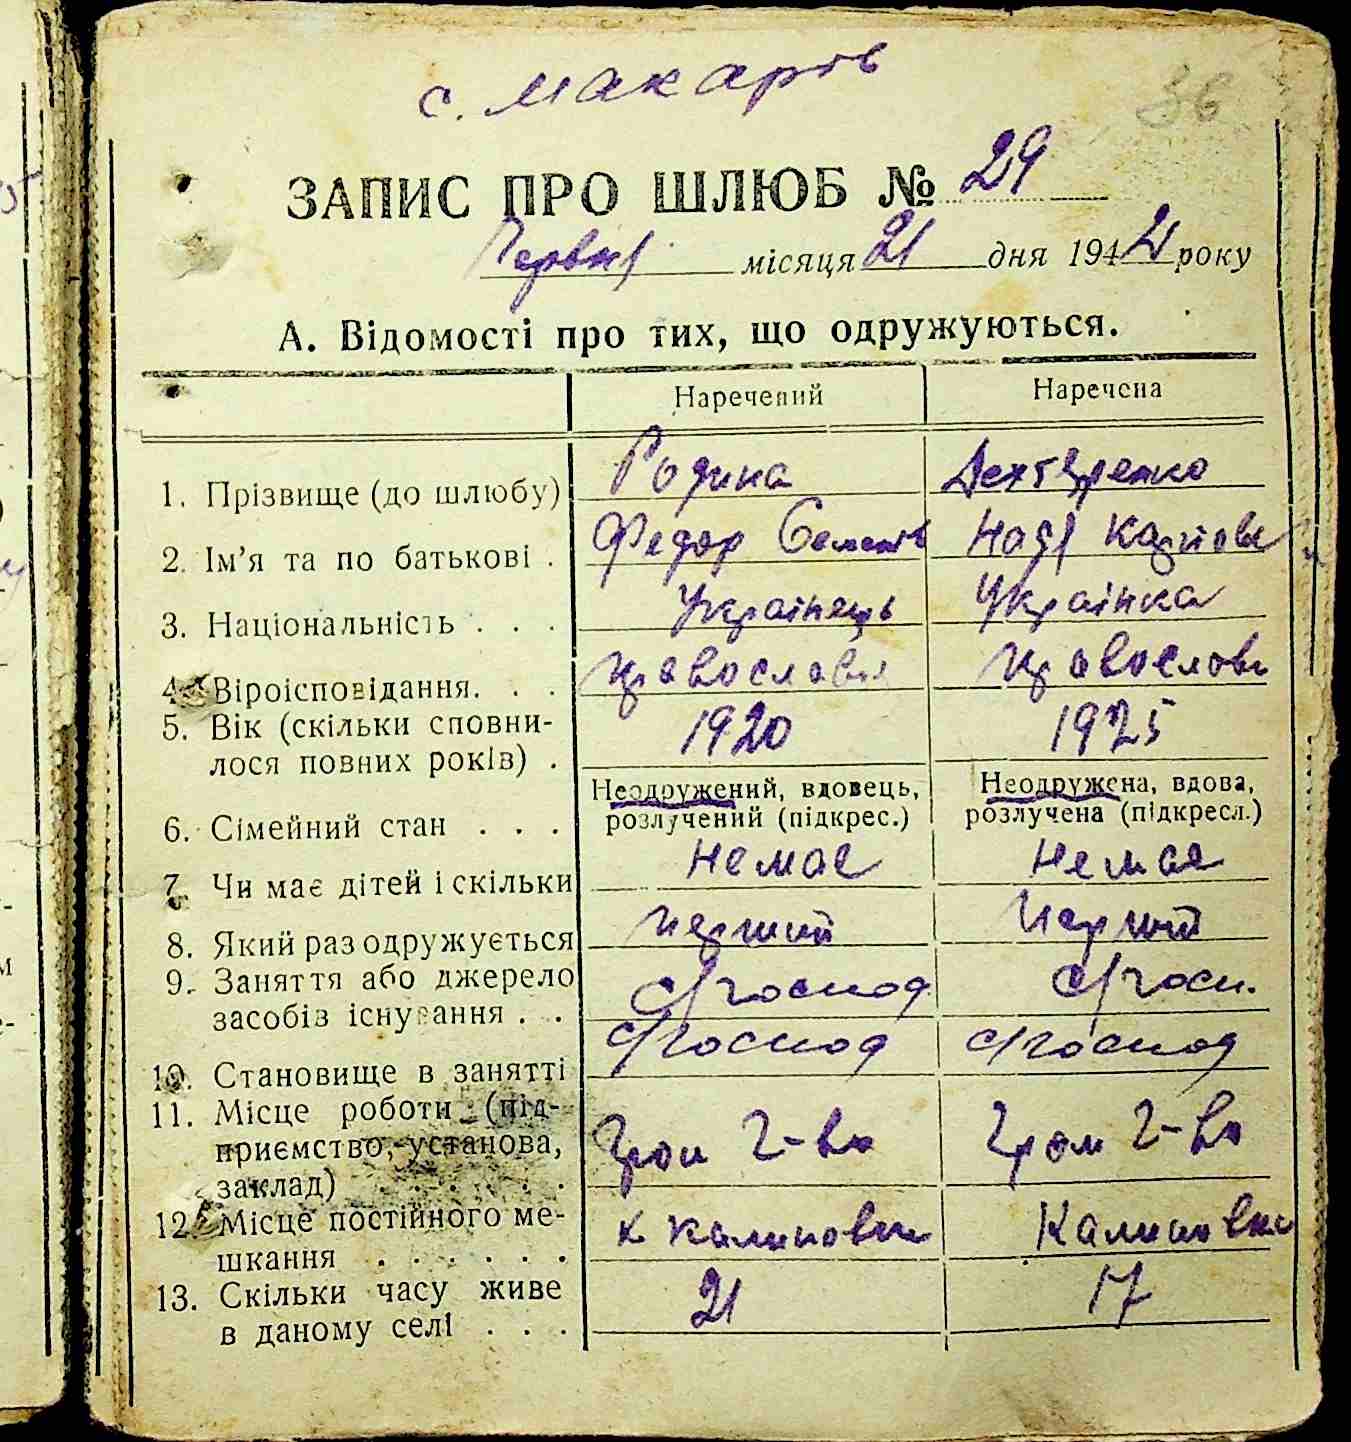 с. Макарів
36
ЗАПИС ПРО ШЛЮБ № 29
Червня місяця 21 дня 1942 року
А. Відомості про тих, що одружуються.
Наречений Наречена
1. Прізвище (до шлюбу) Родина Дехтяренко
2. Ім’я та по батькові . Федор Семенів Надя Карпов
3. Національність . . . Українець Українка
4. Віроісповідання. . . православн православ
5. Вік (скільки сповни-
лося повних років) . 1920 1925
6. Сімейний стан . . . Неодружений, вдовець, розлучений (підкрес.) Неодружена, вдова, розлучена (підкресл.)
7. Чи має дітей і скільки Немає Немає
8. Який раз одружується перший перший
9. Заняття або джерело
засобів існування . . с/господ с/госп.
10. Становище в занятті с/господ с/господ
11. Місце роботи (під-
приємство, установа,
заклад) . . . . . Гром г-во Гром г-во
12. Місце постійного ме-
шкання . . . . . . Калиновка Калиновка
13. Скільки часу живе
в даному селі . . . 21 17